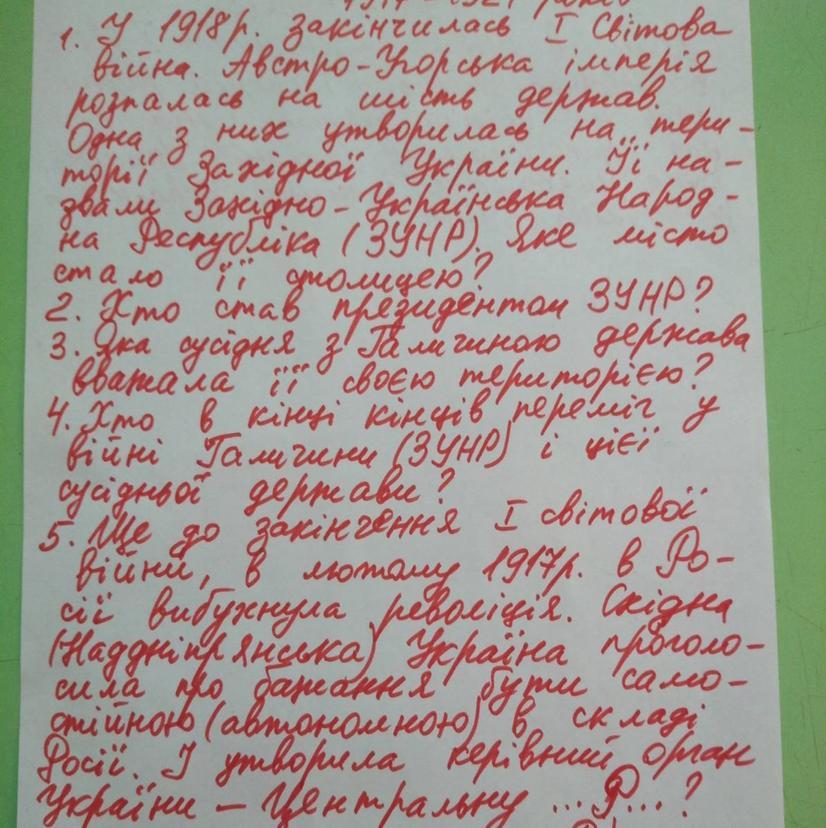 1917-1921 років
1. У 1918р. закінчилась І Світова
війна. Австро-Угорська імперія
розпалась на шість держав.
Одна з них утворилась на тери-
торії Західної України. Її на-
звали Західно-Українська Народ-
на Республіка (ЗУНР). Яке місто
стало її столицею?
2. Хто став президентом ЗУНР?
3. Яка сусідня з Галичиною держава
вважала її своєю територією?
4. Хто в кінці кінців переміг у
війні Галичини (ЗУНР) і цієї
сусідньої держави?
5. Ще до закінчення І світової
війни, в лютому 1917р. в Ро-
сії вибухнула революція. Східна
(Наддніпрянська) Україна проголо-
сила про бажання бути само-
стійною (автономною) в складі
Росії. І утворила керівний орган
України – Центральну ...Р...?